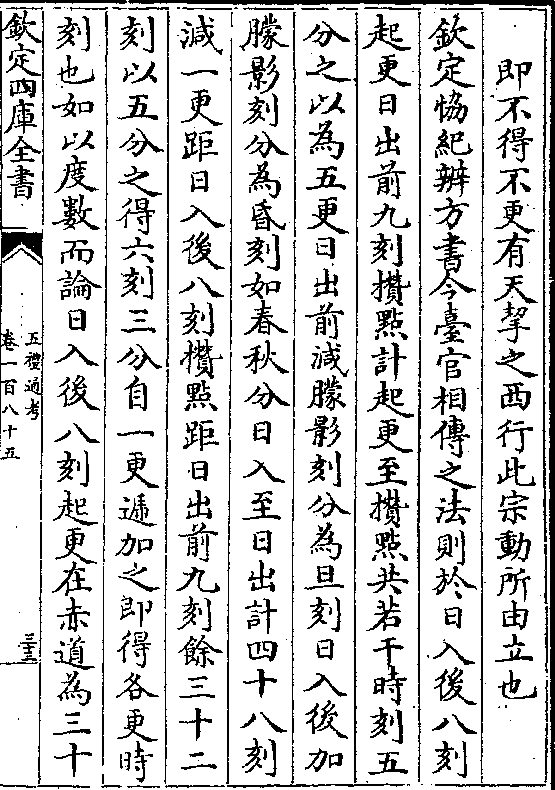 即不得不更有天挈之西行此宗動所由立也
欽定協紀辨方書今臺官相傳之法則於日入後八刻
起更日出前九刻攢㸃計起更至攢㸃共若干時刻五
分之以為五更日出前減朦影刻分為旦刻日入後加
朦影刻分為昏刻如春秋分日入至日出計四十八刻
減一更距日入後八刻攢㸃距日出前九刻餘三十二
刻以五分之得六刻三分自一更遞加之即得各更時
刻也如以度數而論日入後八刻起更在赤道為三十
欽定四庫全書
五禮通考
卷一百八十五
三十三